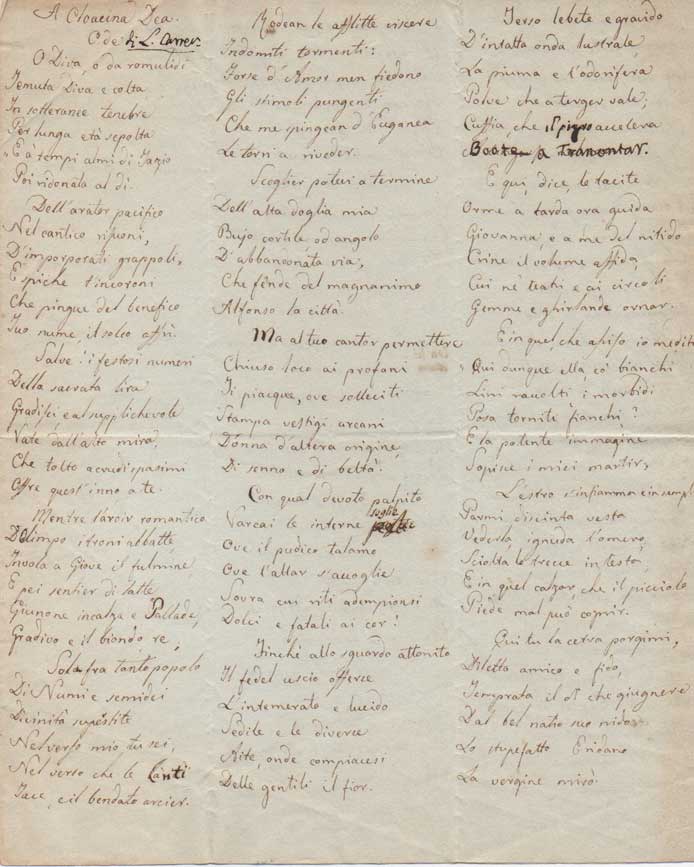 A Cloacina Dea.
Ode di L. Carrer
O Diva, o da romulidi
Temuta Diva e colta
In sotterranee tenebre
Per lunga età sepolta
E a' tempi almi di Fazio
Poi ridonata al dì.
Dell'arator pacifico
Nel cantico risuoni,
D'imporporati grappoli,
E spiche t'incoroni
Che pingue del benefico
Tuo nume, il solco offrì.
Salve! i festosi numeri
Della sacrata lira
Gradisci e al supplichevole
Vate dall'alto mira,
Che tolto a crudi spasimi
Offre quest'inno a te.
Mentre l'ardir romantico
D'Olimpo i troni abbatte,
Invola a Giove il fulmine,
E pei sentier di latte
Giunone incalza e Pallade,
Gradivo e il biondo re,
Sola fra tanto popolo
Di Numi e semidei
Divinità superstite
Nel verso mio tu sei,
Nel verso che le Canti
Tace, e il bendato arcier.
Rodean le afflitte viscere
Indomiti tormenti:
Forse d'Amor men fiedono
Gli stimoli pungenti
Che me spingean d'Euganea
Le torri a riveder.
Scoglier potevi a termine
Dell'alta doglia mia
Bujo cortile od angolo
D'abbandonata via,
Che fende del magnanimo
Alfonso la città.
Ma al tuo cantor permettere
Chiuso loco ai profani
Ti piacque, ove solleciti
Stampa vestigi arcani
Donna d'altera origine,
Di senno e di beltà.
Con qual devoto palpito
Varcai le interne soglie
Ove il pudico talamo
Ove l'altar s'accoglie
Sovra cui riti adempionsi
Dolci e fatali ai cor!
Finchè allo sguardo attonito
Il fedel uscio offerse
L'intemerato e lucido
Sedile e le diverse
Aite, onde compiacesi
Delle gentili il fior.
Terso lebete e gravido
D'intatta onda lustrale,
La piuma e l'odorifera
Polve che a terger vale;
Cuffia, che il pigro accelera
Boote a Tramontar.
E qui, dice, le tacite
Orme a tarda ora guida
Giovanna, e a me del nitido
Crine il volume affida,
Cui ne' teatri e ai circoli
Gemme e ghirlande ornar.
E in quel, che assiso io medito
Qui dunque ella, co' bianchi
Lini ravolti i morbidi
Posa torniti fianchi?
E la potente immagine
Sopisce i miei martir,
L'estro s'infiamma e in sempl
Parmi, discinta vesta
Vederla, ignuda l'omero,
Sciolta le trecce in testa,
E in quel calzar, che il picciolo
Piede mal può coprir.
Qui tu la cetra porgimi,
Diletta amico e fido,
Temprata il dì che giugnere
Dal bel natio suo nido
Lo stupefatto Eridano
La vergine mirò.